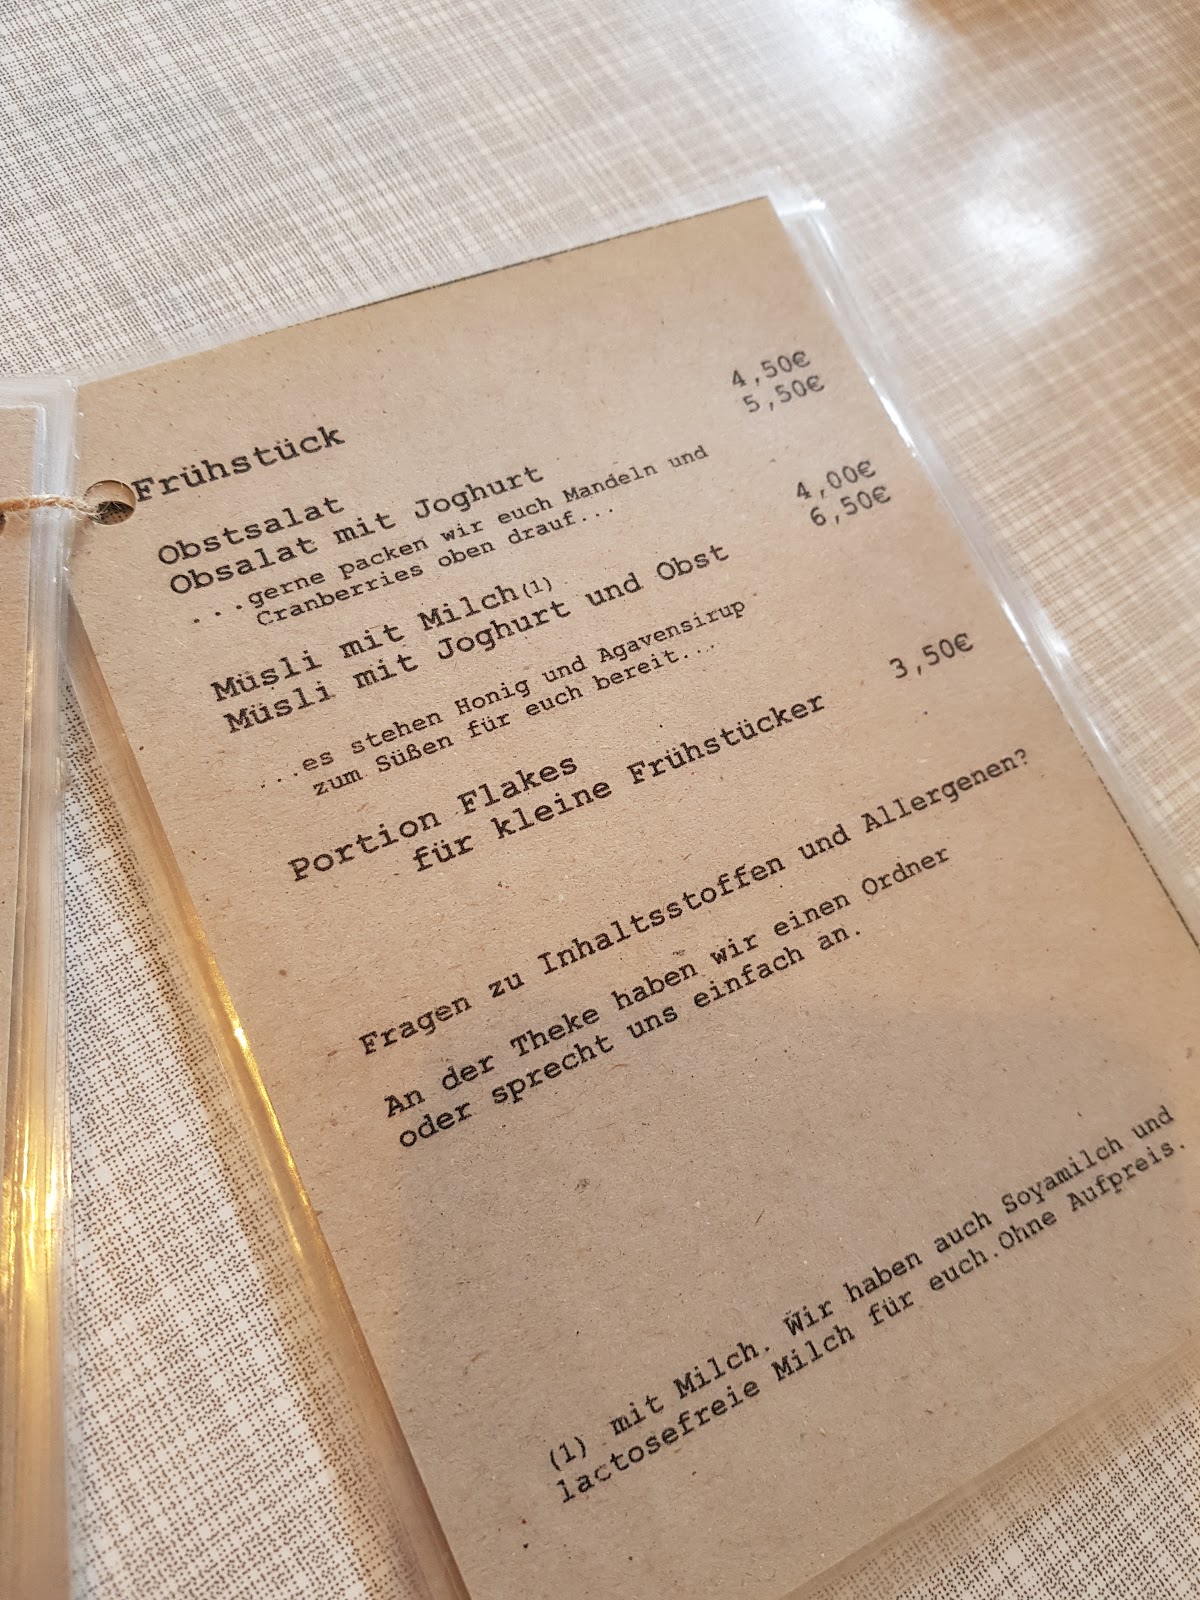 Frühstück
Obstsalat 4,50€
Obsalat mit Joghurt 5,50€
...gerne packen wir euch Mandeln und
Cranberries oben drauf...
Müsli mit Milch(1) 4,00€
Müsli mit Joghurt und Obst 6,50€
...es stehen Honig und Agavensirup
zum Süßen für euch bereit...
Portion Flakes
für kleine Frühstücker 3,50€
Fragen zu Inhaltsstoffen und Allergenen?
An der Theke haben wir einen Ordner
oder sprecht uns einfach an.
(1) mit Milch. Wir haben auch Soyamilch und
lactosefreie Milch für euch.Ohne Aufpreis.